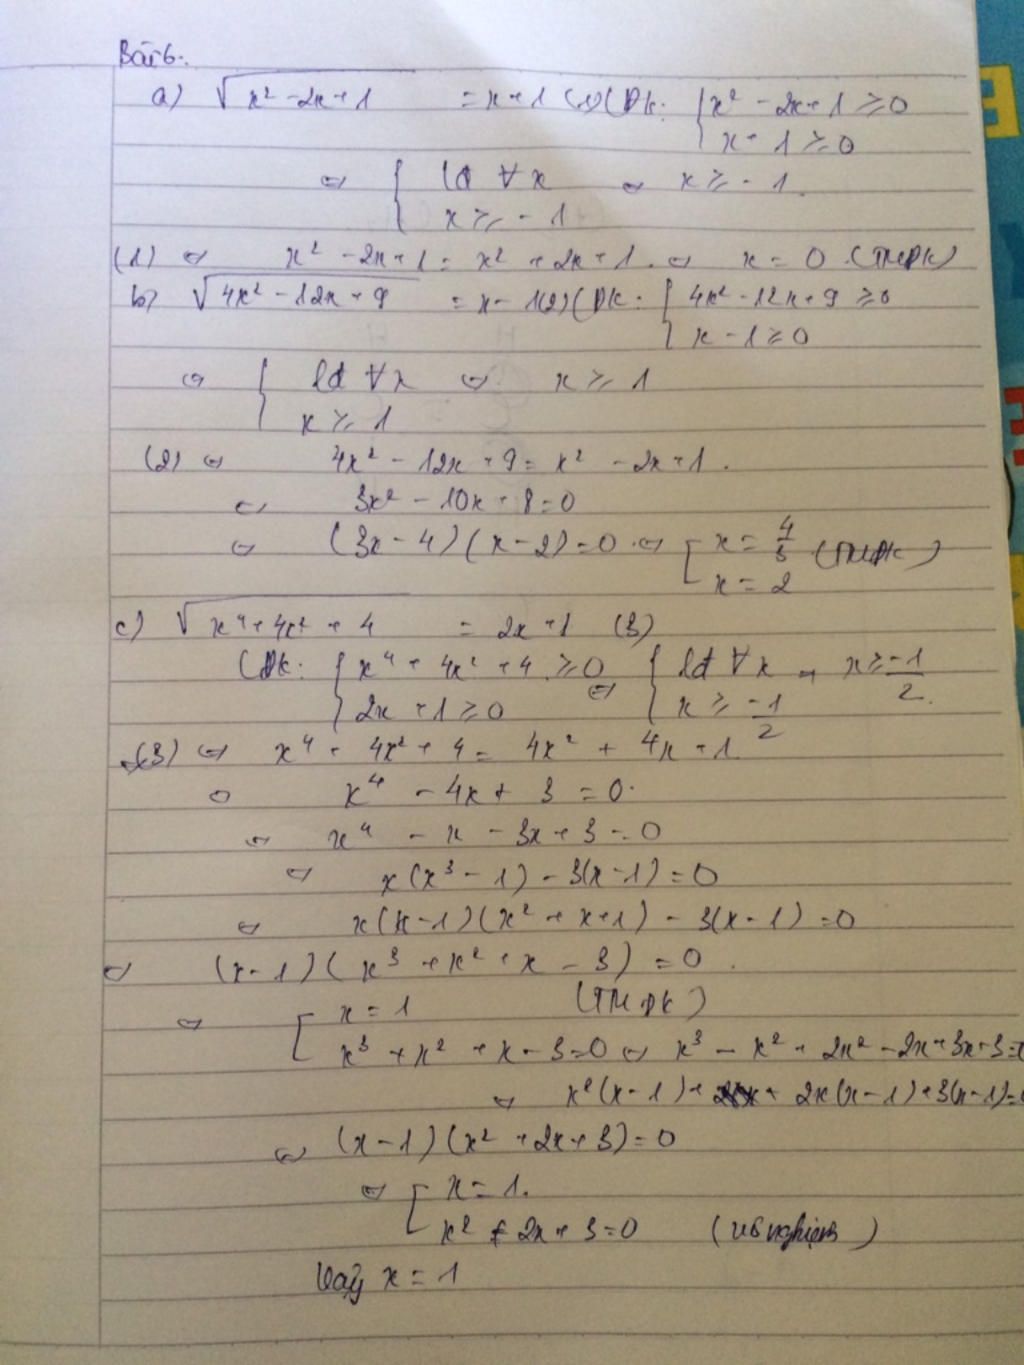 Bài 6.
a) √(x² - 2x + 1) = x + 1 (1) (ĐK: { x² - 2x + 1 ≥ 0
x + 1 ≥ 0
⇔ { lđ ∀ x ⇔ x ≥ - 1.
x ≥ - 1
(1) ⇔ x² - 2x + 1 = x² + 2x + 1. ⇔ x = 0 (TMĐK)
b) √(4x² - 12x + 9) = x - 1 (2) (ĐK: { 4x² - 12x + 9 ≥ 0
x - 1 ≥ 0
⇔ { lđ ∀ x ⇔ x ≥ 1
x ≥ 1
(2) ⇔ 4x² - 12x + 9 = x² - 2x + 1.
⇔ 3x² - 10x + 8 = 0
⇔ (3x - 4)(x - 2) = 0 ⇔ [ x = 4/3 (TMĐK)
x = 2
c) √(x⁴ + 4x² + 4) = 2x + 1 (3)
(ĐK: { x⁴ + 4x² + 4 ≥ 0 ⇔ { lđ ∀ x ⇔ x ≥ -1/2.
2x + 1 ≥ 0 x ≥ -1/2
(3) ⇔ x⁴ + 4x² + 4 = 4x² + 4x + 1
⇔ x⁴ - 4x + 3 = 0.
⇔ x⁴ - x - 3x + 3 = 0
⇔ x(x³ - 1) - 3(x - 1) = 0
⇔ x(x - 1)(x² + x + 1) - 3(x - 1) = 0
⇔ (x - 1)(x³ + x² + x - 3) = 0.
⇔ [ x = 1 (TMĐK)
x³ + x² + x - 3 = 0 ⇔ x³ - x² + 2x² - 2x + 3x - 3 = 0
⇔ x²(x - 1) + 2x(x - 1) + 3(x - 1) = 0
⇔ (x - 1)(x² + 2x + 3) = 0
⇔ [ x = 1.
x² + 2x + 3 = 0 (vô nghiệm)
Vậy x = 1